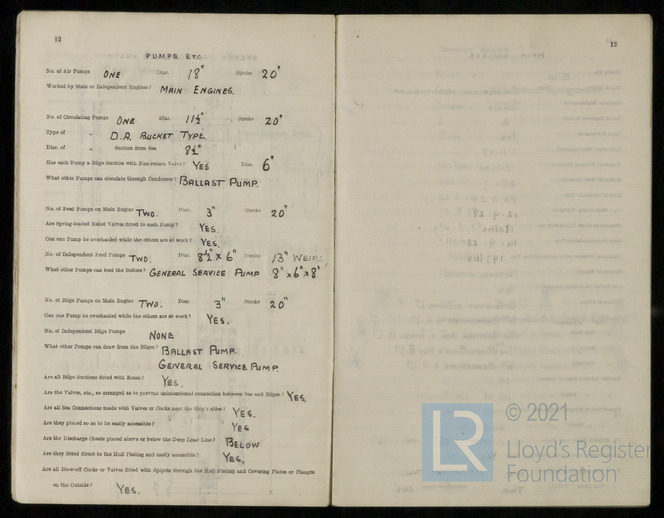 12
PUMPS, ETC.
No. of Air Pumps ONE Diar. 18" Stroke 20"
Worked by Main or Independent Engines? MAIN ENGINES.
No. of Circulating Pumps ONE Diar. 11½" Stroke 20"
Type of " D.A. BUCKET TYPE
Diar. of " Suction from Sea 8½"
Has each Pump a Bilge Suction with Non-return Valve? YES Diar. 6"
What other Pumps can circulate through Condenser? BALLAST PUMP.
No. of Feed Pumps on Main Engine TWO. Diar. 3" Stroke 20"
Are Spring-loaded Relief Valves fitted to each Pump? YES.
Can one Pump be overhauled while the others are at work? YES.
No. of Independent Feed Pumps TWO. Diar. 8½ × 6" Stroke 13" WEIRS
What other Pumps can feed the Boilers? GENERAL SERVICE PUMP 8" × 6" × 8"
No. of Bilge Pumps on Main Engine TWO. Diar. 3" Stroke 20"
Can one Pump be overhauled while the others are at work? YES.
No. of Independent Bilge Pumps NONE
What other Pumps can draw from the Bilges? BALLAST PUMP.
GENERAL SERVICE PUMP.
Are all Bilge Suctions fitted with Roses? YES.
Are the Valves, etc., so arranged as to prevent unintentional connection between Sea and Bilges? YES
Are all Sea Connections made with Valves or Cocks next the Ship's sides? YES.
Are they placed so as to be easily accessible? YES
Are the Discharge Chests placed above or below the Deep Load Line? BELOW
Are they fitted direct to the Hull Plating and easily accessible? YES.
Are all Blow-off Cocks or Valves fitted with Spigots through the Hull Plating and Covering Plates or Flanges
on the Outside? YES.
12
LR
© 2021
Lloyd's Register
Foundation